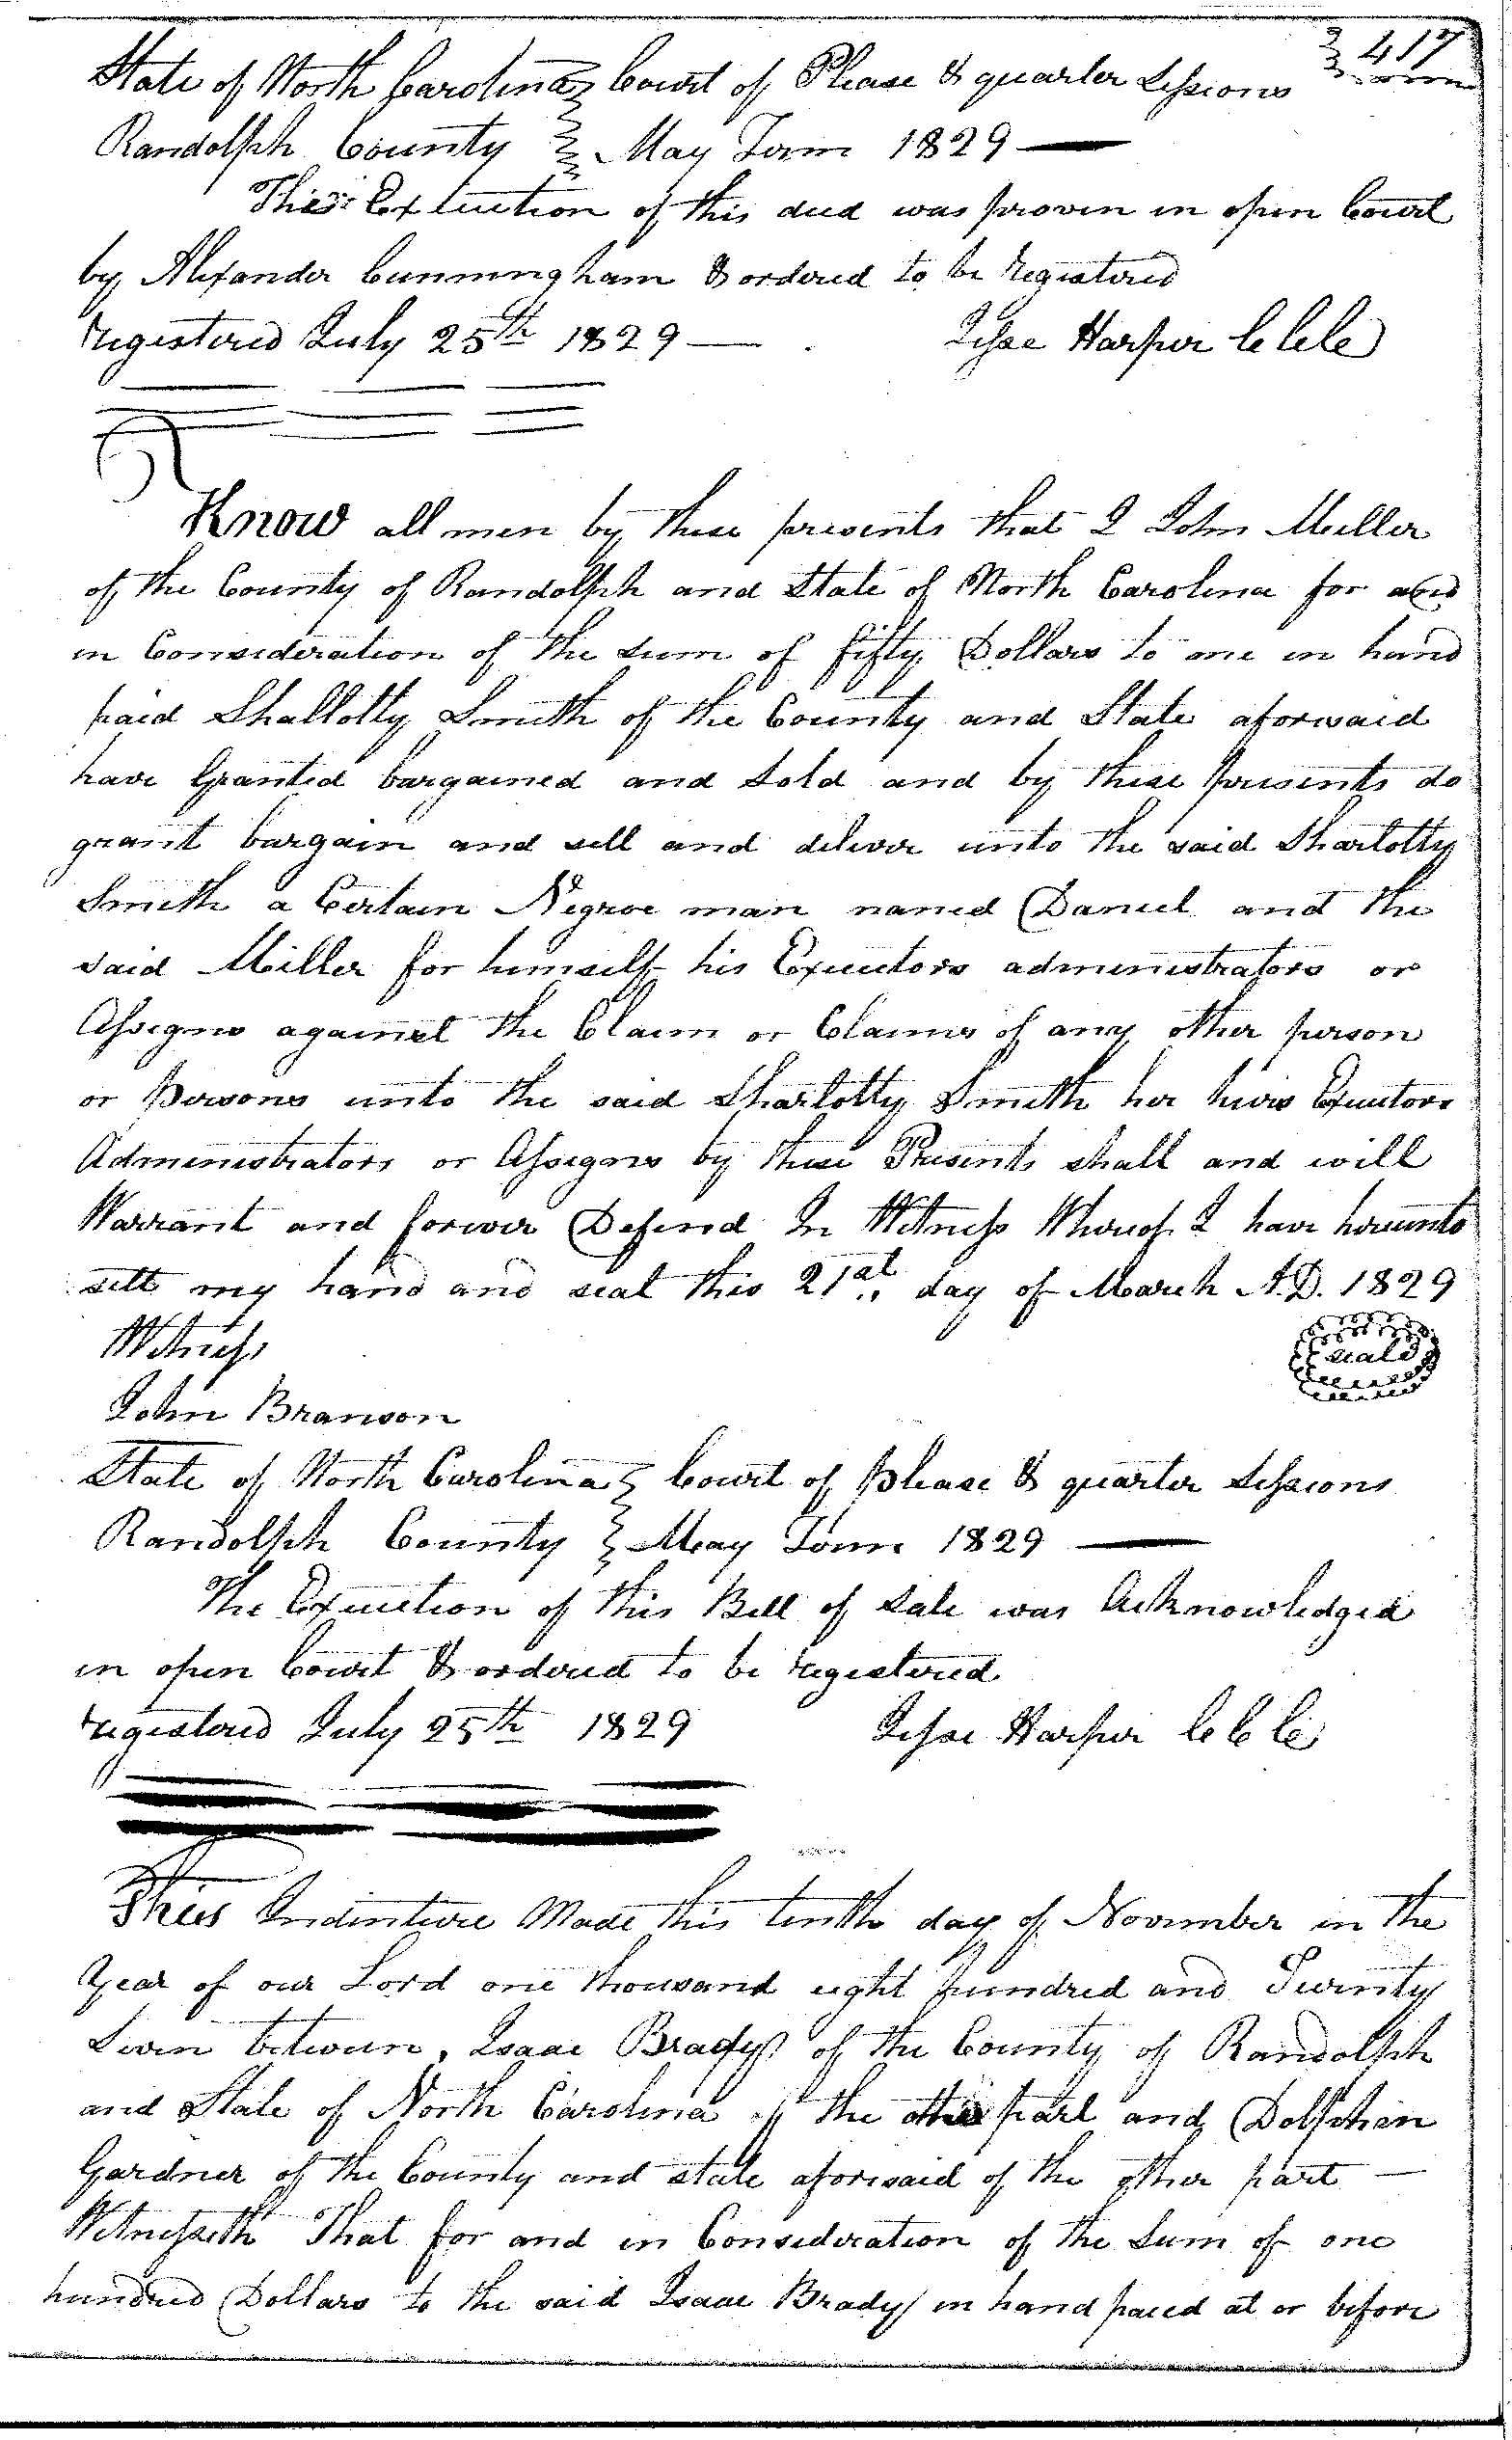 417
State of North Carolina } Court of Please & quarter Sessions
Randolph County } May Term 1829 —
This Execution of this deed was proven in open Court
by Alexander Cunningham & ordered to be registered
registered July 25th 1829 — Jesse Harper C C C
Know all men by these presents that I John Miller
of the County of Randolph and State of North Carolina for and
in Consideration of the sum of fifty Dollars to me in hand
paid Shallotty Smith of the County and State aforesaid
have Granted bargained and sold and by these presents do
grant bargain and sell and deliver unto the said Sharlotty
Smith a Certain Negroe man named Daniel and the
said Miller for himself his Executors administrators or
Assigns against the Claim or Claims of any other person
or persons unto the said Sharlotty Smith her heirs Executors
Administrators or Assigns by these Presents shall and will
Warrant and forever Defend In Witness Whereof I have hereunto
sett my hand and seal this 21st day of March A.D. 1829
Witness seal
John Branson
State of North Carolina } Court of please & quarter Sessions
Randolph County } May Term 1829 —
The Execution of this Bill of Sale was Acknowledged
in open Court & ordered to be registered
registered July 25th 1829 Jesse Harper C C C
This Indenture Made this tenth day of November in the
Year of our Lord one thousand eight hundred and Twenty
Seven between, Isaac Brady of the County of Randolph
and State of North Carolina of the part and Dolphian
Gardner of the County and state aforesaid of the other part —
Witnesseth That for and in Consideration of the Sum of one
hundred Dollars to the said Isaac Brady in hand paid at or before